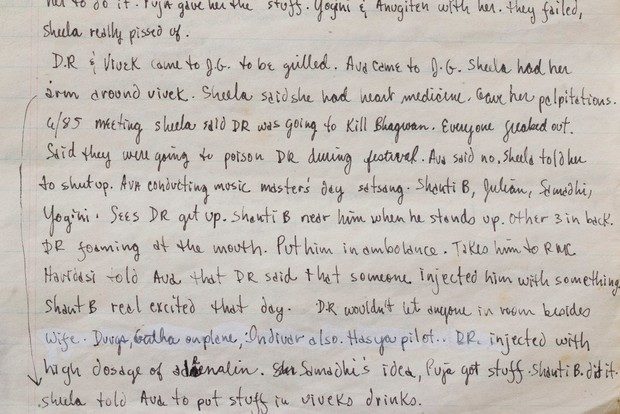 her to do it. Puja gave her the stuff. Yogini & Anugiten with her. they failed,
sheela really pissed of.
D.R & Vivek came to J.G. to be grilled. Ava came to J.G. Sheela had her
arm around vivek. Sheela said she had heart medicine. Gave her palpitations.
6/85 meeting sheela said DR was going to Kill Bhagwan. Everyone freaked out.
Said they were going to poison DR during festival. Ava said no, sheela told her
to shut up. Ava conducting music master's day satsang. Shanti B, Julian, Samadhi,
Yogini. Sees DR get up. Shanti B near him when he stands up. Other 3 in back.
DR foaming at the mouth. Put him in ambolance. Takes him to RMC
Haridasi told Ava that DR said that someone injected him with something
Shant B real excited that day. DR wouldn't let anyone in room besides
wife. Durga, on plane, Indivar also. Hasya pilot.. DR. injected with
high dosage of adrenalin. Samadhi's idea, Puja got stuff. Shanti B. did it.
sheela told Ava to put stuff in viveks drinks.